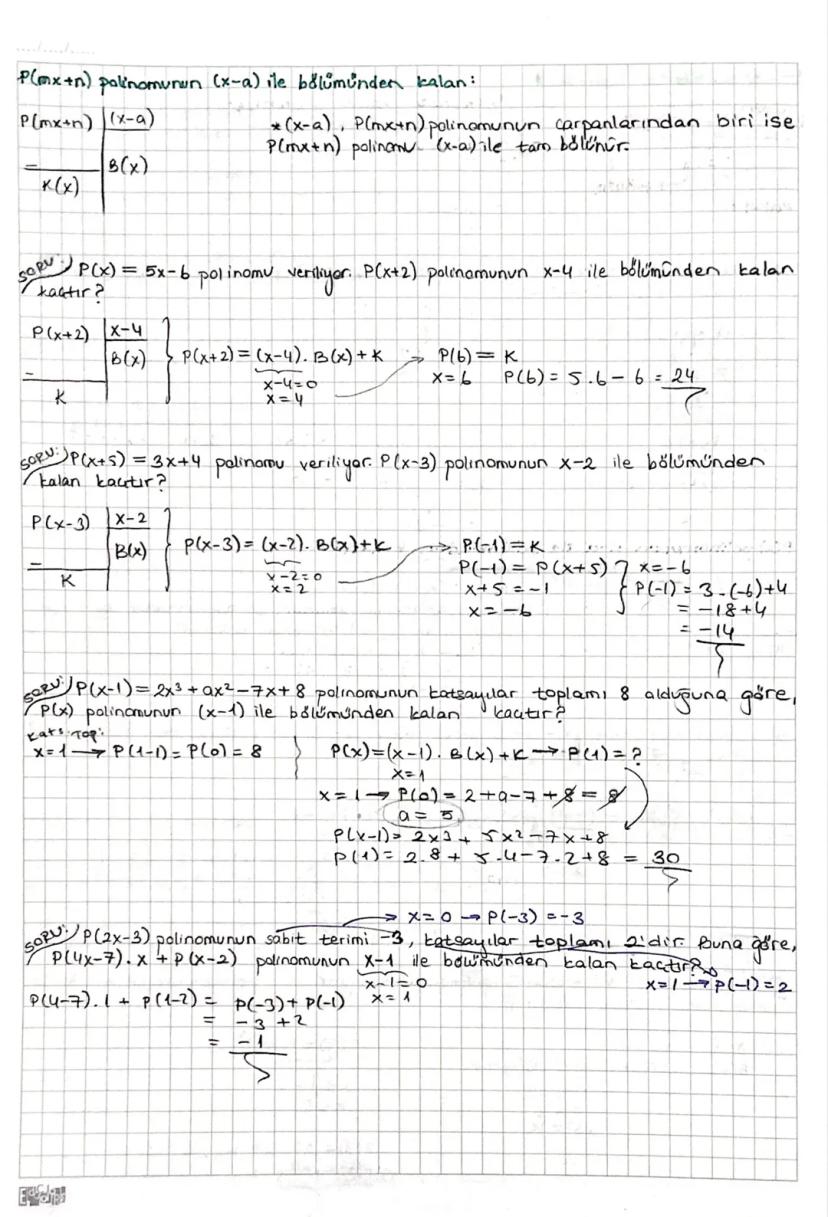 P(mx+n) polinomunun (x-a) ile bölümünden kalan:
P(mx+n) (x-a)
B(x)
K(x)
*(x-a), P(mx+n) polinomunun çarpanlarından biri ise
P(mx+n) polinomu (x-a) ile tam bölünür.
SORU: P(x) = 5x-6 polinomu veriliyor. P(x+2) polinomunun x-4 ile bölümünden kalan
kaçtır?
P(x+2) x-4
B(x)
K
P(x+2) = (x-4). B(x) + K
x-4=0
x=4
P(6) = K
x=6 P(6) = 5.6 - 6 = 24
SORU: P(x+5) = 3x+4 polinomu veriliyor. P(x-3) polinomunun x-2 ile bölümünden
kalan kaçtır?
P(x-3) x-2
B(x)
K
P(x-3) = (x-2). B(x)+K
x-2=0
x=2
P(-1) = K
P(-1) = P(x+5)
x+5 = -1
x = -6
x=-6
P(-1) = 3.(-6)+4
= -18+4
= -14
SORU: P(x-1) = 2x³ + ax² - 7x + 8 polinomunun katsayılar toplamı 8 olduğuna göre,
P(x) polinomunun (x-1) ile bölümünden kalan kaçtır?
Kats. Top:
x=1 → P(1-1) = P(0) = 8
P(x)=(x-1). B(x)+K → P(1) = ?
x=1
x = 1 → P(0) = 2+a-7+8 = 8
a = 5
P(x-1) = 2x3 + 5x² - 7x + 8
P(1) = 2.8 + 5.4 - 7.2 + 8 = 30
x=0 → P(-3) = -3
SORU: P(2x-3) polinomunun sabit terimi -3, katsayılar toplamı 2'dir. Buna göre,
P(4x-7).x + P(x-2) polinomunun x-1 ile bölümünden kalan kaçtır?
x-1=0
x=1
x=1 → P(-1) = 2
P(4-7).1 + P(1-2) = P(-3) + P(-1)
= -3 + 2
= -1